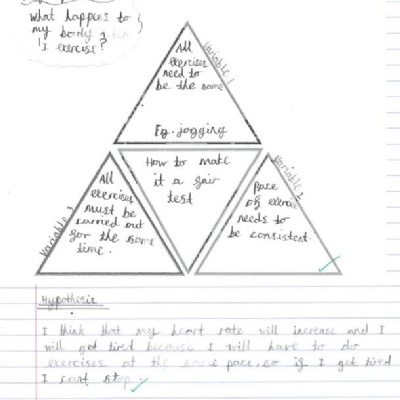 What happens to
my body when
I exercise?
Variable 1
All
exercises
need to
be the same
Eg. jogging
How to make
it a fair
test
Variable 3
All
exercises
must be
carried out
for the same
time.
Variable 2
Pace
of exercise
needs to
be consistent.
Hypothesis
I think that my heart rate will increase and I
will get tired because I will have to do
exercises at the same pace, so if I get tired
I cant stop.